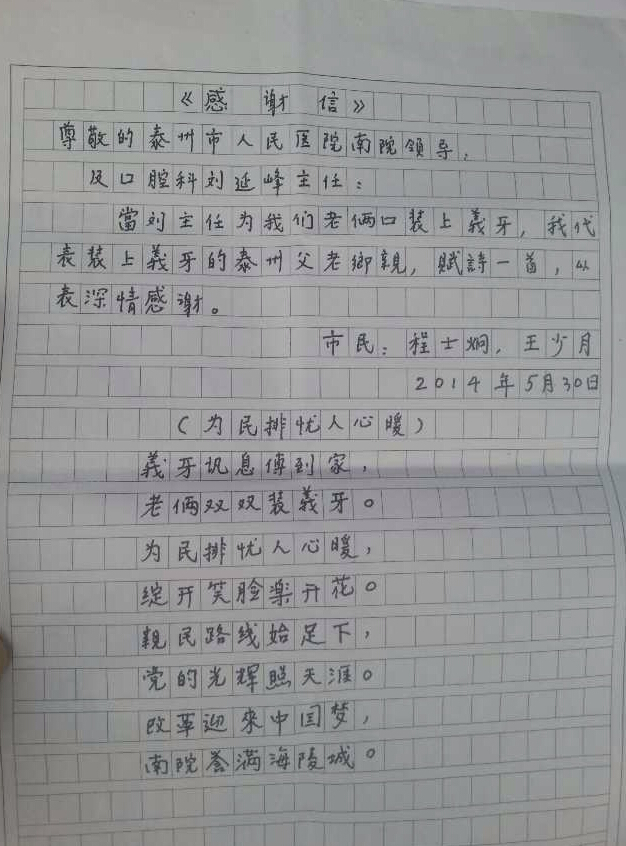 《感谢信》
尊敬的泰州市人民医院南院领导,
及口腔科刘延峰主任：
當刘主任为我们老俩口装上義牙，我代
表装上義牙的泰州父老鄉親，賦詩一首，以
表深情感谢。
市民：程士炯，王少月
2014年5月30日
（为民排忧人心暖）
義牙讯息傳到家，
老俩双双装義牙。
为民排忧人心暖，
绽开笑脸楽开花。
親民路线始足下，
党的光辉照天涯。
改革迎来中国梦，
南院誉满海陵城。